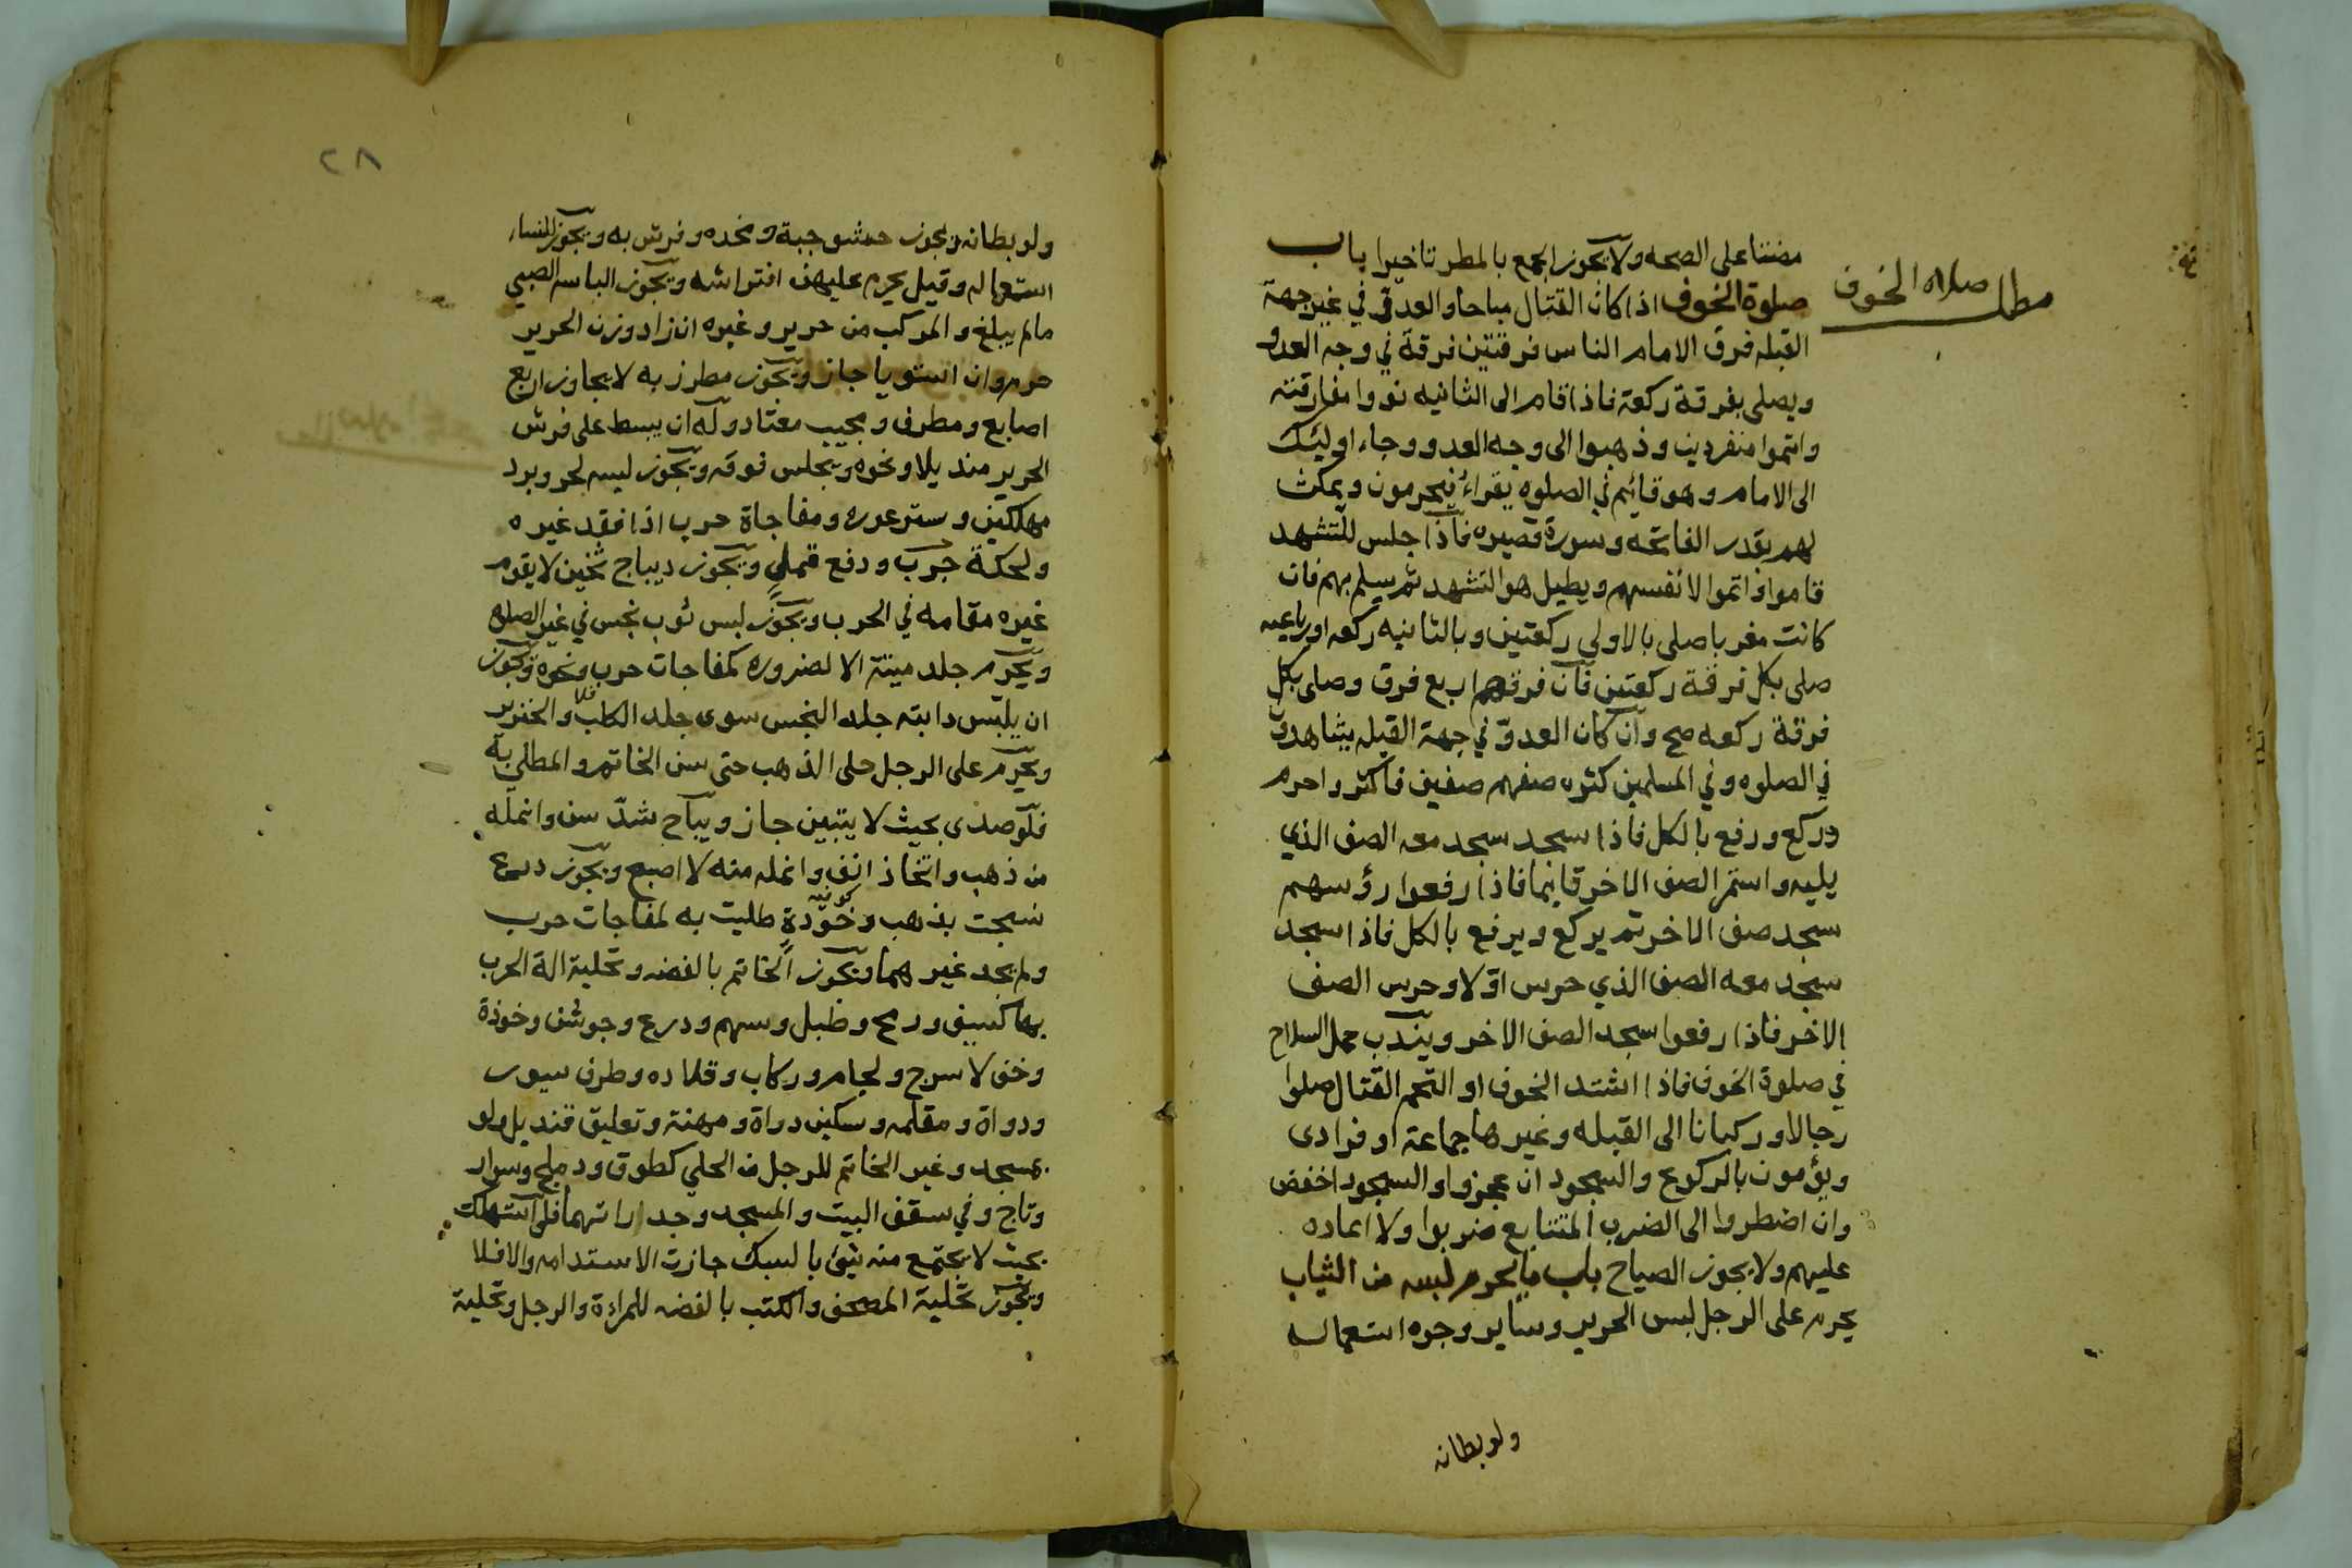 مطلب صلاه الخوف
مضتا على الصحه ولا يجوز الجمع بالمطر تاخيرا باب
صلوة الخوف اذا كان القتال مباحا والعدو في غير جهة
القبله فرق الامام الناس فرقتين فرقة في وجه العدو
ويصلى بفرقة ركعة فاذا قام الى الثانيه نووا مفارقته
واتموا منفردين وذهبوا الى وجه العدو وجاء اوليئك
الى الامام وهو قايم في الصلوه يقراء فيحرمون ويمكث
لهم بقدر الفاتحه وسورة قصيره فاذا جلس للتشهد
قاموا واتموا لانفسهم ويطيل هو التشهد ثم يسلم بهم فان
كانت مغربا صلى بالاولى ركعتين وبالثانيه ركعه اورباعيه
صلى بكل فرقة ركعتين فان فرقهم اربع فرق وصلى بكل
فرقة ركعه صح وان كان العدو في جهة القبله يشاهدون
في الصلوه وفي المسلمين كثره صفهم صفين فاكثر واحرم
وركع ورفع بالكل فاذا سجد سجد معه الصف الذي
يليه واستمر الصف الاخر قايما فاذا رفعوا رؤسهم
سجد صف الاخر ثم يركع ويرفع بالكل فاذا سجد
سجد معه الصف الذي حرس اولا وحرس الصف
الاخر فاذا رفعوا سجد الصف الاخر ويندب حمل السلاح
في صلوة الخوف فاذا اشتد الخوف او التحم القتال صلوا
رجالا وركبانا الى القبله وغيرها جماعة او فرادى
ويؤمون بالركوع والسجود ان عجزوا والسجود اخفض
وان اضطروا الى الضرب المتتابع ضربوا ولا اعاده
عليهم ولا يجوز الصياح باب ما يحرم لبسه من الثياب
يحرم على الرجل لبس الحرير وساير وجوه استعماله
ولو بطانه
٢٨
ولو بطانه ويجوز حشو جبة ومخده وفرش به ويجوز للنساء
استعماله وقيل يحرم عليهن افتراشه ويجوز الباسه الصبي
مالم يبلغ والمركب من حرير وغيره ان زاد وزن الحرير
حرم وان استويا جاز ويجوز مطرز به لا يجاوز اربع
اصابع ومطرف ومجيب معتاد وله ان يبسط على فرش
الحرير منديلا ونحوه ويجلس فوقه ويجوز لبسه لحر وبرد
مهلكين وستر عوره ومفاجاة حرب اذا فقد غيره
ولحكة جرب ودفع قمل ويجوز ديباج ثخين لا يقوم
غيره مقامه في الحرب ويجوز لبس ثوب نجس في غير الصلاه
ويحرم جلد ميتة الا لضروره كمفاجات حرب ونحوه ويجوز
ان يلبس دابته جلد النجس سوى جلد الكلب والخنزير
ويحرم على الرجل حلى الذهب حتى سن الخاتم والمطلى به
فلو صدى بحيث لا يتبين جاز ويباح شد سن وانمله
من ذهب واتخاذ انف وانمله منه لا اصبع ويجوز درع
نسجت بذهب وخوذة طليت به لمفاجات حرب
ولم يجد غيرهما ويجوز الخاتم بالفضه وتحلية الة الحرب
بها كسيف ورمح وطبل وسهم ودرع وجوشن وخوذة
وخف لا سرج ولجام وركاب وقلاده وطرف سيور
ودواة ومقلمه وسكين دواة ومهنة وتعليق قنديل ولو
بمسجد وغير الخاتم للرجل من الحلي كطوق ودملج وسوار
وتاج وفي سقف البيت والمسجد وجداراتهما فلو استهلكت
بحيث لا يجتمع منه شئ بالسبك جازت الاستدامه والافلا
ويجوز تحلية المصحف والكتب بالفضه للمراءة والرجل وتحلية